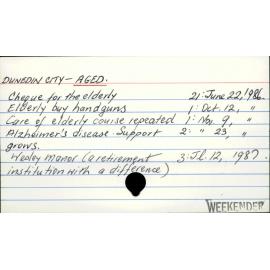 DUNEDIN CITY - AGED.
Cheque for the elderly 21: June 22, 1986.
Elderly buy handguns 1: Oct. 12, "
Care of elderly course repeated 1: Nov. 9, "
Alzheimer's disease Support 2: " 23, "
grows.
Wesley Manor (a retirement 3: Jl. 12, 1987.
institution with a difference)
WEEKENDER